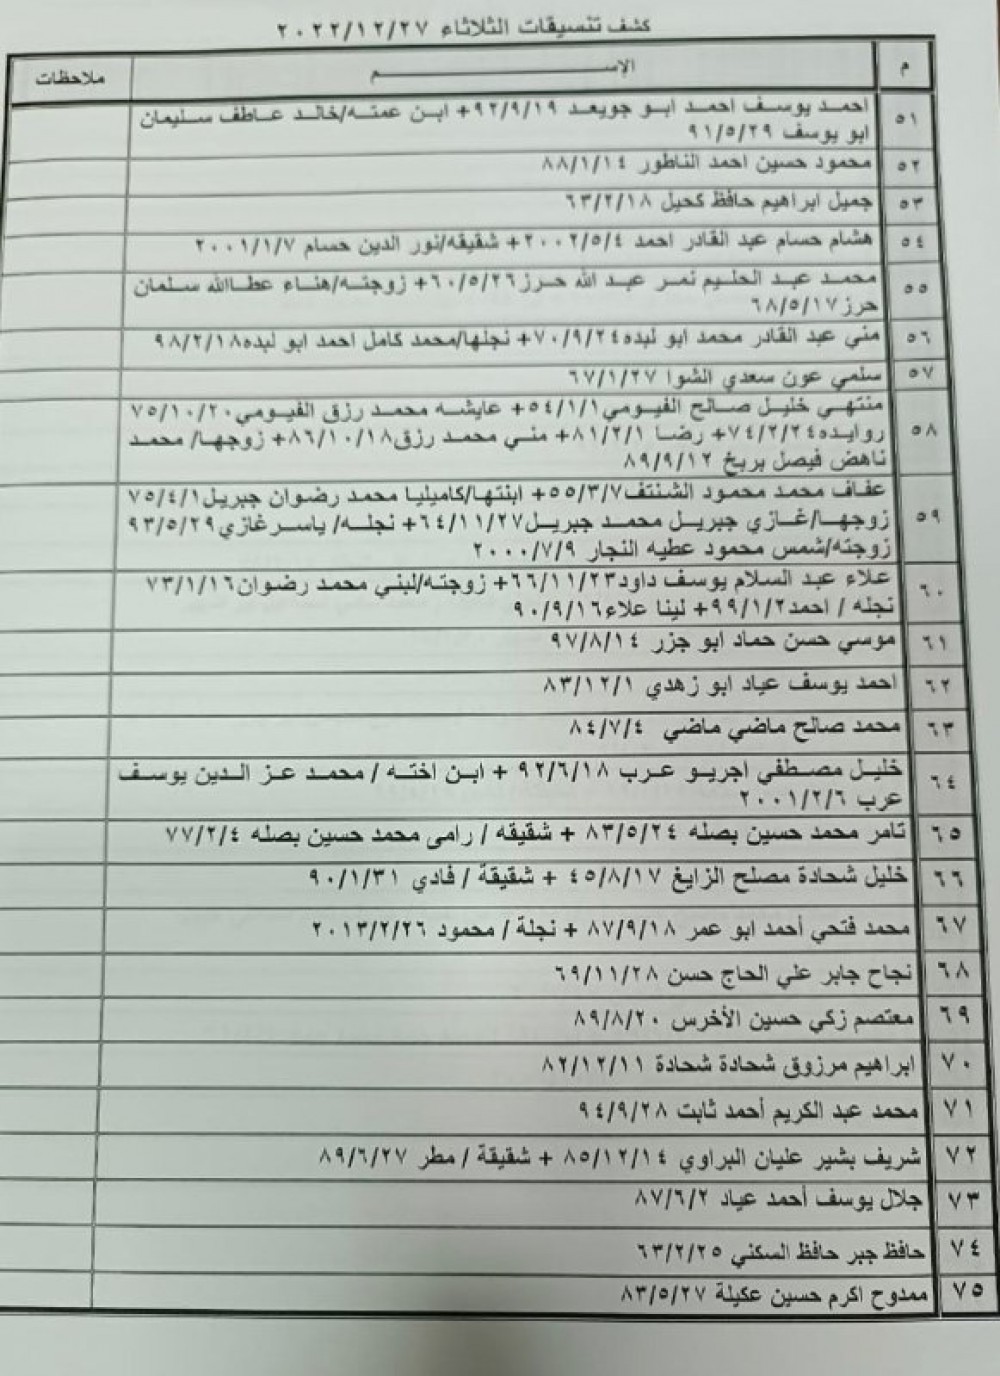 كشف تنسيقات الثلاثاء ٢٠٢٢/١٢/٢٧
م الإســـــــم ملاحظات
٥١ احمد يوسف احمد ابو جويعد ٩٢/٩/١٩+ ابن عمته/خالد عاطف سليمان
ابو يوسف ٩١/٥/٢٩
٥٢ محمود حسين احمد الناطور ٨٨/١/١٤
٥٣ جميل ابراهيم حافظ كحيل ٦٣/٢/١٨
٥٤ هشام حسام عبد القادر احمد ٢٠٠٢/٥/٤+ شقيقه/نور الدين حسام ٢٠٠١/١/٧
٥٥ محمد عبد الحليم نمر عبد الله حرز٦٠/٥/٢٦+ زوجته/هناء عطاالله سلمان
حرز٦٨/٥/١٧
٥٦ مني عبد القادر محمد ابو لبده٧٠/٩/٢٤+ نجلها/محمد كامل احمد ابو لبده٩٨/٢/١٨
٥٧ سلمي عون سعدي الشوا ٦٧/١/٢٧
٥٨ منتهي خليل صالح الفيومي٥٤/١/١+ عايشه محمد رزق الفيومي٧٥/١٠/٢٠
روايده٧٤/٢/٢٤+ رضا ٨١/٢/١+ مني محمد رزق٨٦/١٠/١٨+ زوجها/ محمد
ناهض فيصل بربخ ٨٩/٩/١٢
٥٩ عفاف محمد محمود الشنتف٥٥/٣/٧+ ابنتها/كاميليا محمد رضوان جبريل٧٥/٤/١
زوجها/غازي جبريل محمد جبريل٦٤/١١/٢٧+ نجله/ ياسر غازي٩٣/٥/٢٩
زوجته/شمس محمود عطيه النجار ٢٠٠٠/٧/٩
٦٠ علاء عبد السلام يوسف داود٦٦/١١/٢٣+ زوجته/لبني محمد رضوان٧٣/١/١٦
نجله / احمد٩٩/١/٢+ لينا علاء٩٠/٩/١٦
٦١ موسي حسن حماد ابو جزر ٩٧/٨/١٤
٦٢ احمد يوسف عياد ابو زهدي ٨٣/١٢/١
٦٣ محمد صالح ماضي ماضي ٨٤/٧/٤
٦٤ خليل مصطفي اجريو عرب ٩٢/٦/١٨ + ابن اخته / محمد عز الدين يوسف
عرب ٢٠٠١/٢/٦
٦٥ تامر محمد حسين بصله ٨٣/٥/٢٤ + شقيقه / رامى محمد حسين بصله ٧٧/٢/٤
٦٦ خليل شحادة مصلح الزايغ ٤٥/٨/١٧ + شقيقة / فادي ٩٠/١/٣١
٦٧ محمد فتحي أحمد ابو عمر ٨٧/٩/١٨ + نجلة / محمود ٢٠١٣/٢/٢٦
٦٨ نجاح جابر علي الحاج حسن ٦٩/١١/٢٨
٦٩ معتصم زكي حسين الأخرس ٨٩/٨/٢٠
٧٠ ابراهيم مرزوق شحادة شحادة ٨٢/١٢/١١
٧١ محمد عبد الكريم أحمد ثابت ٩٤/٩/٢٨
٧٢ شريف بشير عليان البراوي ٨٥/١٢/١٤ + شقيقة / مطر ٨٩/٦/٢٧
٧٣ جلال يوسف أحمد عياد ٨٧/٦/٢
٧٤ حافظ جبر حافظ السكني ٦٣/٢/٢٥
٧٥ ممدوح اكرم حسين عكيلة ٨٣/٥/٢٧